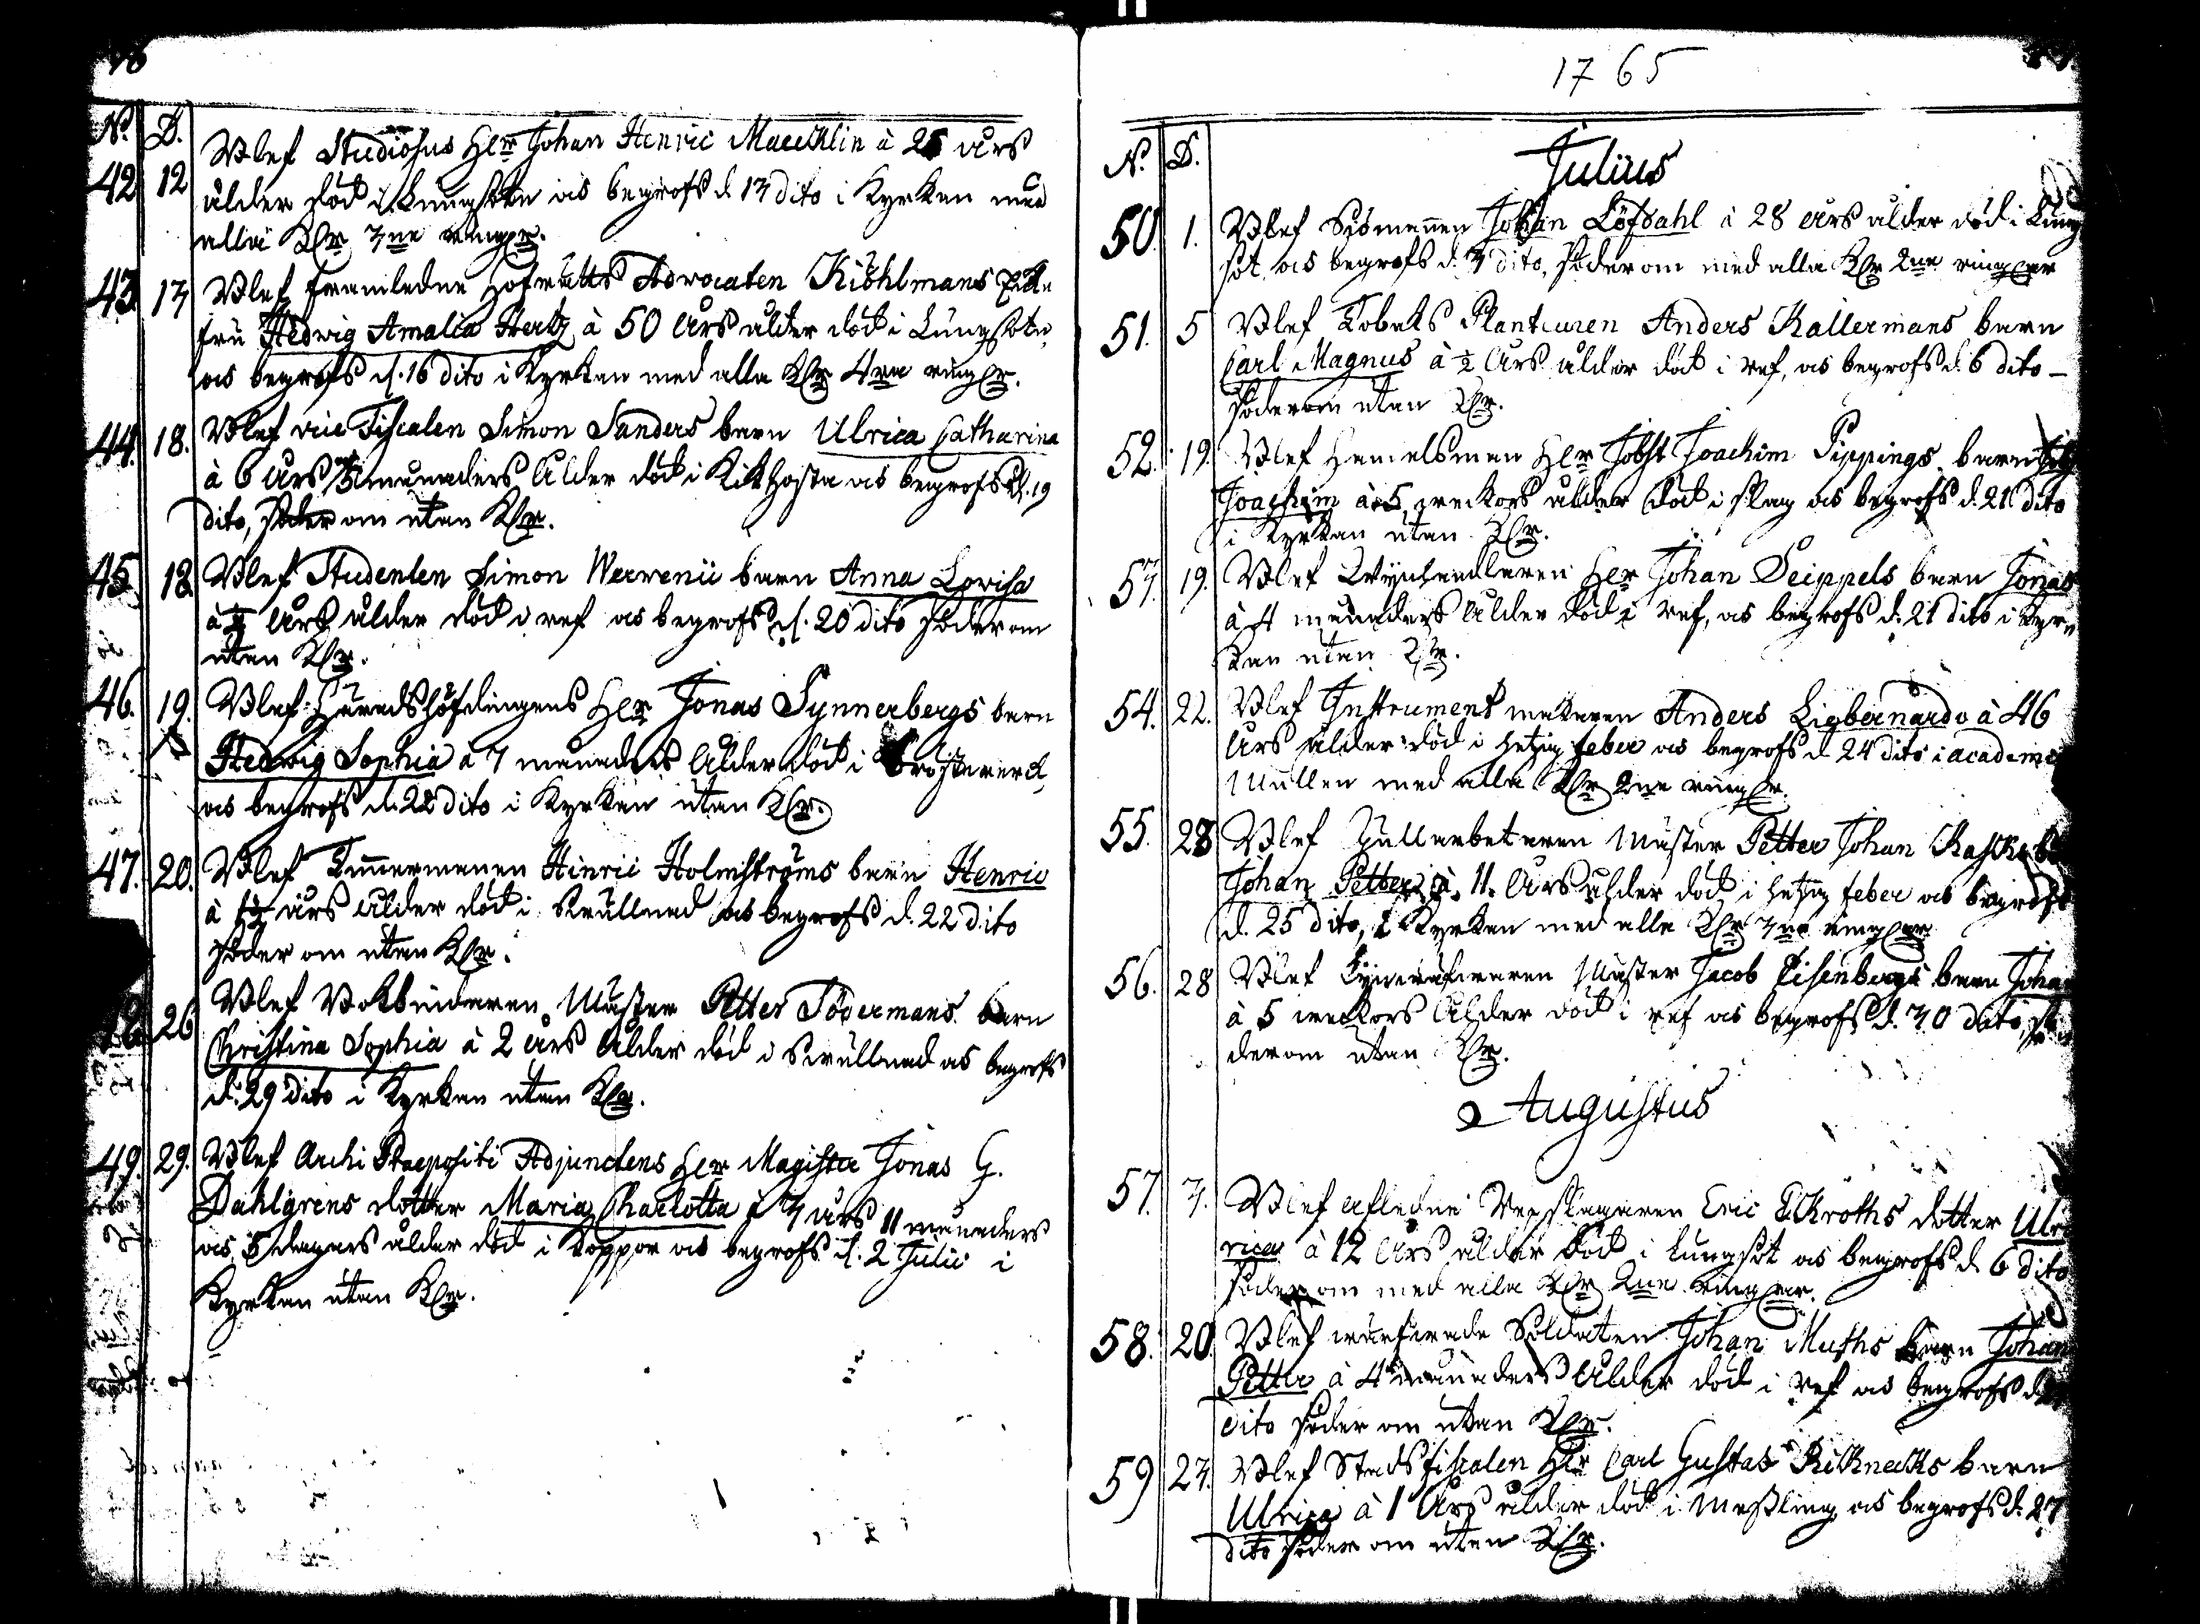 1765
N. D.
42 12 Blef Studiosus Herr Johan Henric Maecklin à 25 Års
ålder död i Lungsoten as begrofs d. 13 dito i Kyrkan med
alla Klr 3ne ringr.
43. 13 Blef framledne Hofrätts Advocaten Kiöhlmans Enke
fru Hedwig Amalia Hertz à 50 Års ålder död i Lungsoten,
as begrofs d. 16 dito i Kyrkan med alla Klr 4ra ringr.
44. 18. Blef vice Fiscalen Simon Sanders barn Ulrica Catharina
à 6 Års månaders Ålder död i Kikhosta as begrofs d. 19
dito, söder om utan Klr.
45 18 Blef Studenten Simon Werrenii barn Anna Lovisa
à Års ålder död i ref as begrofs d. 20 dito söder om
utan Klr.
46. 19. Blef Häradshöfdingens Herr Jonas Synnerbergs barn
Hedwig Sophia à 7 månaders Ålder död i bröstwerck,
as begrofs d. 22 dito i Kyrkan utan Klr.
47. 20. Blef Timmermannen Hinric Holmströms barn Henric
à års Ålder död i Swullnad as begrofs d. 22 dito
söder om utan Klr.
26 Blef Bokbindaren Mäster Petter Södermans barn
Christina Sophia à 2 Års Ålder död i Swullnad as begrofs
d. 29 dito i Kyrkan utan Klr.
49. 29. Blef Archi Præpositi Adjunctens Herr Magister Jonas G.
Dahlgrens dotter Maria Charlotta à 3 Års 11 månaders
as 5 dagars ålder död i Koppor as begrofs d. 2 Julii i
Kyrkan utan Klr.
N. D. Julius
50. 1. Blef Siömannen Johan Löfdahl à 28 Års ålder död i Lung
sot as begrofs d. 3 dito, söder om med alla Klr 2ne ringar
51. 5 Blef Tobaks Planteuren Anders Kallermans barn
Carl Magnus à ½ Års ålder död i ref, as begrofs d. 6 dito
söderom utan Klr.
52. 19. Blef Handelsman Herr Jobst Joachim Pippings barn
Joachim à 5 weckors ålder död i slag as begrofs d. 21 dito
i Kyrkan utan Klr.
53. 19. Blef Wijnhandlaren Herr Johan Seippels barn Jonas
à månaders Ålder död i ref, as begrofs d. 21 dito i Kyr
kan utan Klr.
54. 22. Blef Instrument makaren Anders Ligbernardo à 46
Års ålder död i hetzig feber as begrofs d 24 dito i academie
Mullen med alla Klr 2ne ringr.
55. 23 Blef Gullarbetaren Mäster Petter Johan
Johan Petter à 11. Års ålder död i hetzig feber as begrofs
d. 25 dito, i Kyrkan med alla Klr 3ne ringar
56. 28 Blef Mäster Jacob Eisenbergs barn Johan
à 5 weckors Ålder död i ref as begrofs d. 30 dito, sö
derom utan Klr.
Augustus
57. 3. Blef afledne Repslagaren Eric Ekroths dotter Ul
rica à 12 Års ålder död i Lungsot as begrofs d. 6 dito
söder om med alla Klr 2ne ringar.
58. 20 Blef wärfwade Soldaten Johan Muths barn Johan
Petter à 4 månaders Ålder död i ref as begrofs d.
dito söder om utan Klr.
59 23. Blef Stadsfiscalen Herr Carl Gustaf Ritknechts barn
Ulrica à 1 Års ålder död i Meßling as begrofs d. 27
dito söder om utan Klr.